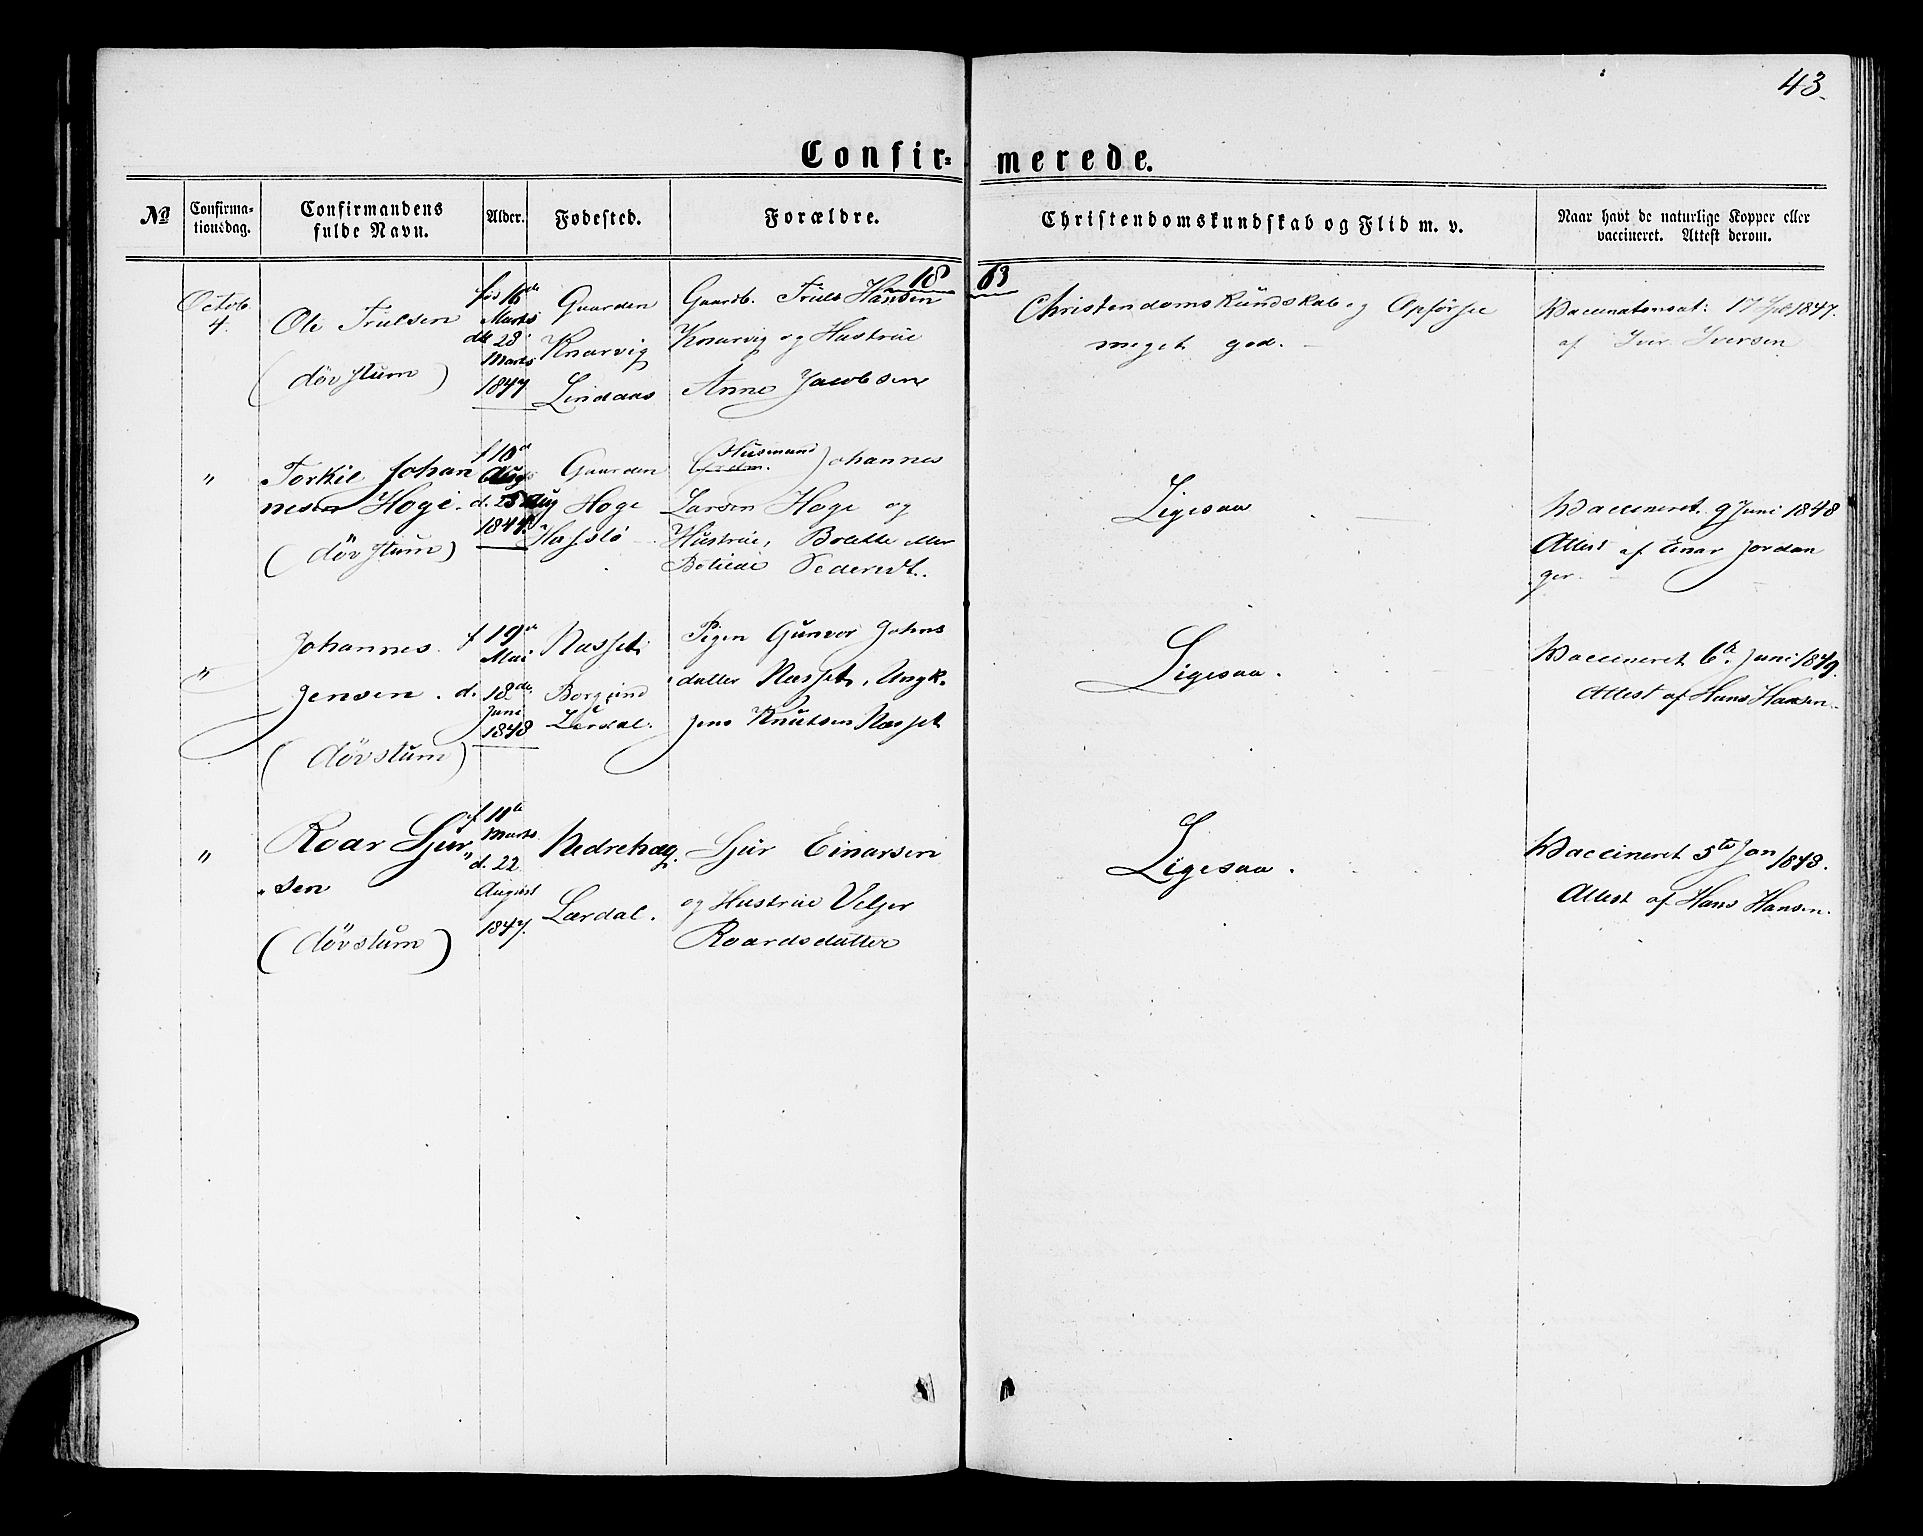 43.
Confir= merede.
No
Confirma=
tionsdag.
Confirmandens
fulde Navn.
Alder.
Fødested.
Forældre.
Christendomskundskab og Flid m. v.
Naar havt de naturlige Kopper eller
vaccineret. Attest derom.
1863
Octob
4.
Ole Trulsen
(døvstum)
16de
Marts
28
Marts
1847
Gaarden
Knarvig
Lindaas
Gaardb. Truls Hansen
Knarvig og Hustrue
Anne Jacobsen
Christendomskundskab og Opførsel
meget god.
Vaccinationsat: 1847.
af Iver Iversen
"
Torkil Johan
nesen Hoge.
(døvstum)
f 10de
Aug
d. 25 Aug
1844.
Gaarden
Hoge
Hafslo
(Husmand) Johannes
Larsen Hoge og
Hustrue, Bolette eller
Ligesaa
Vaccineret 9 Juni 1848
Attest af Einar Jordan
ger.
"
Johannes
Jensen.
(døvstum)
f 19de
Mai
d. 18de
Juni
1848
Næsset
Borgund
Lerdal.
Pigen Gunvor Johns
datter Næsset, Ungk.
Jens Knutsen Næsset
Ligesaa.
Vaccineret 6te Juni 1849.
Attest af Hans Hansen.
"
Roar Sjur
"sen
(døvstum)
f 11te
Marts
d. 22
August
1847.
Nedrehæg.
Lærdal.
Sjur Einarsen
og Hustrue
Roardsdatter
Ligesaa.
Vaccineret 5te Jan 1848.
Attest af Hans Hansen.